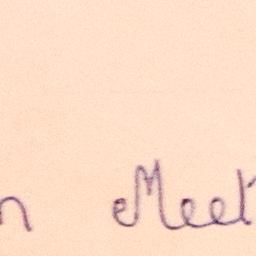 n Meet